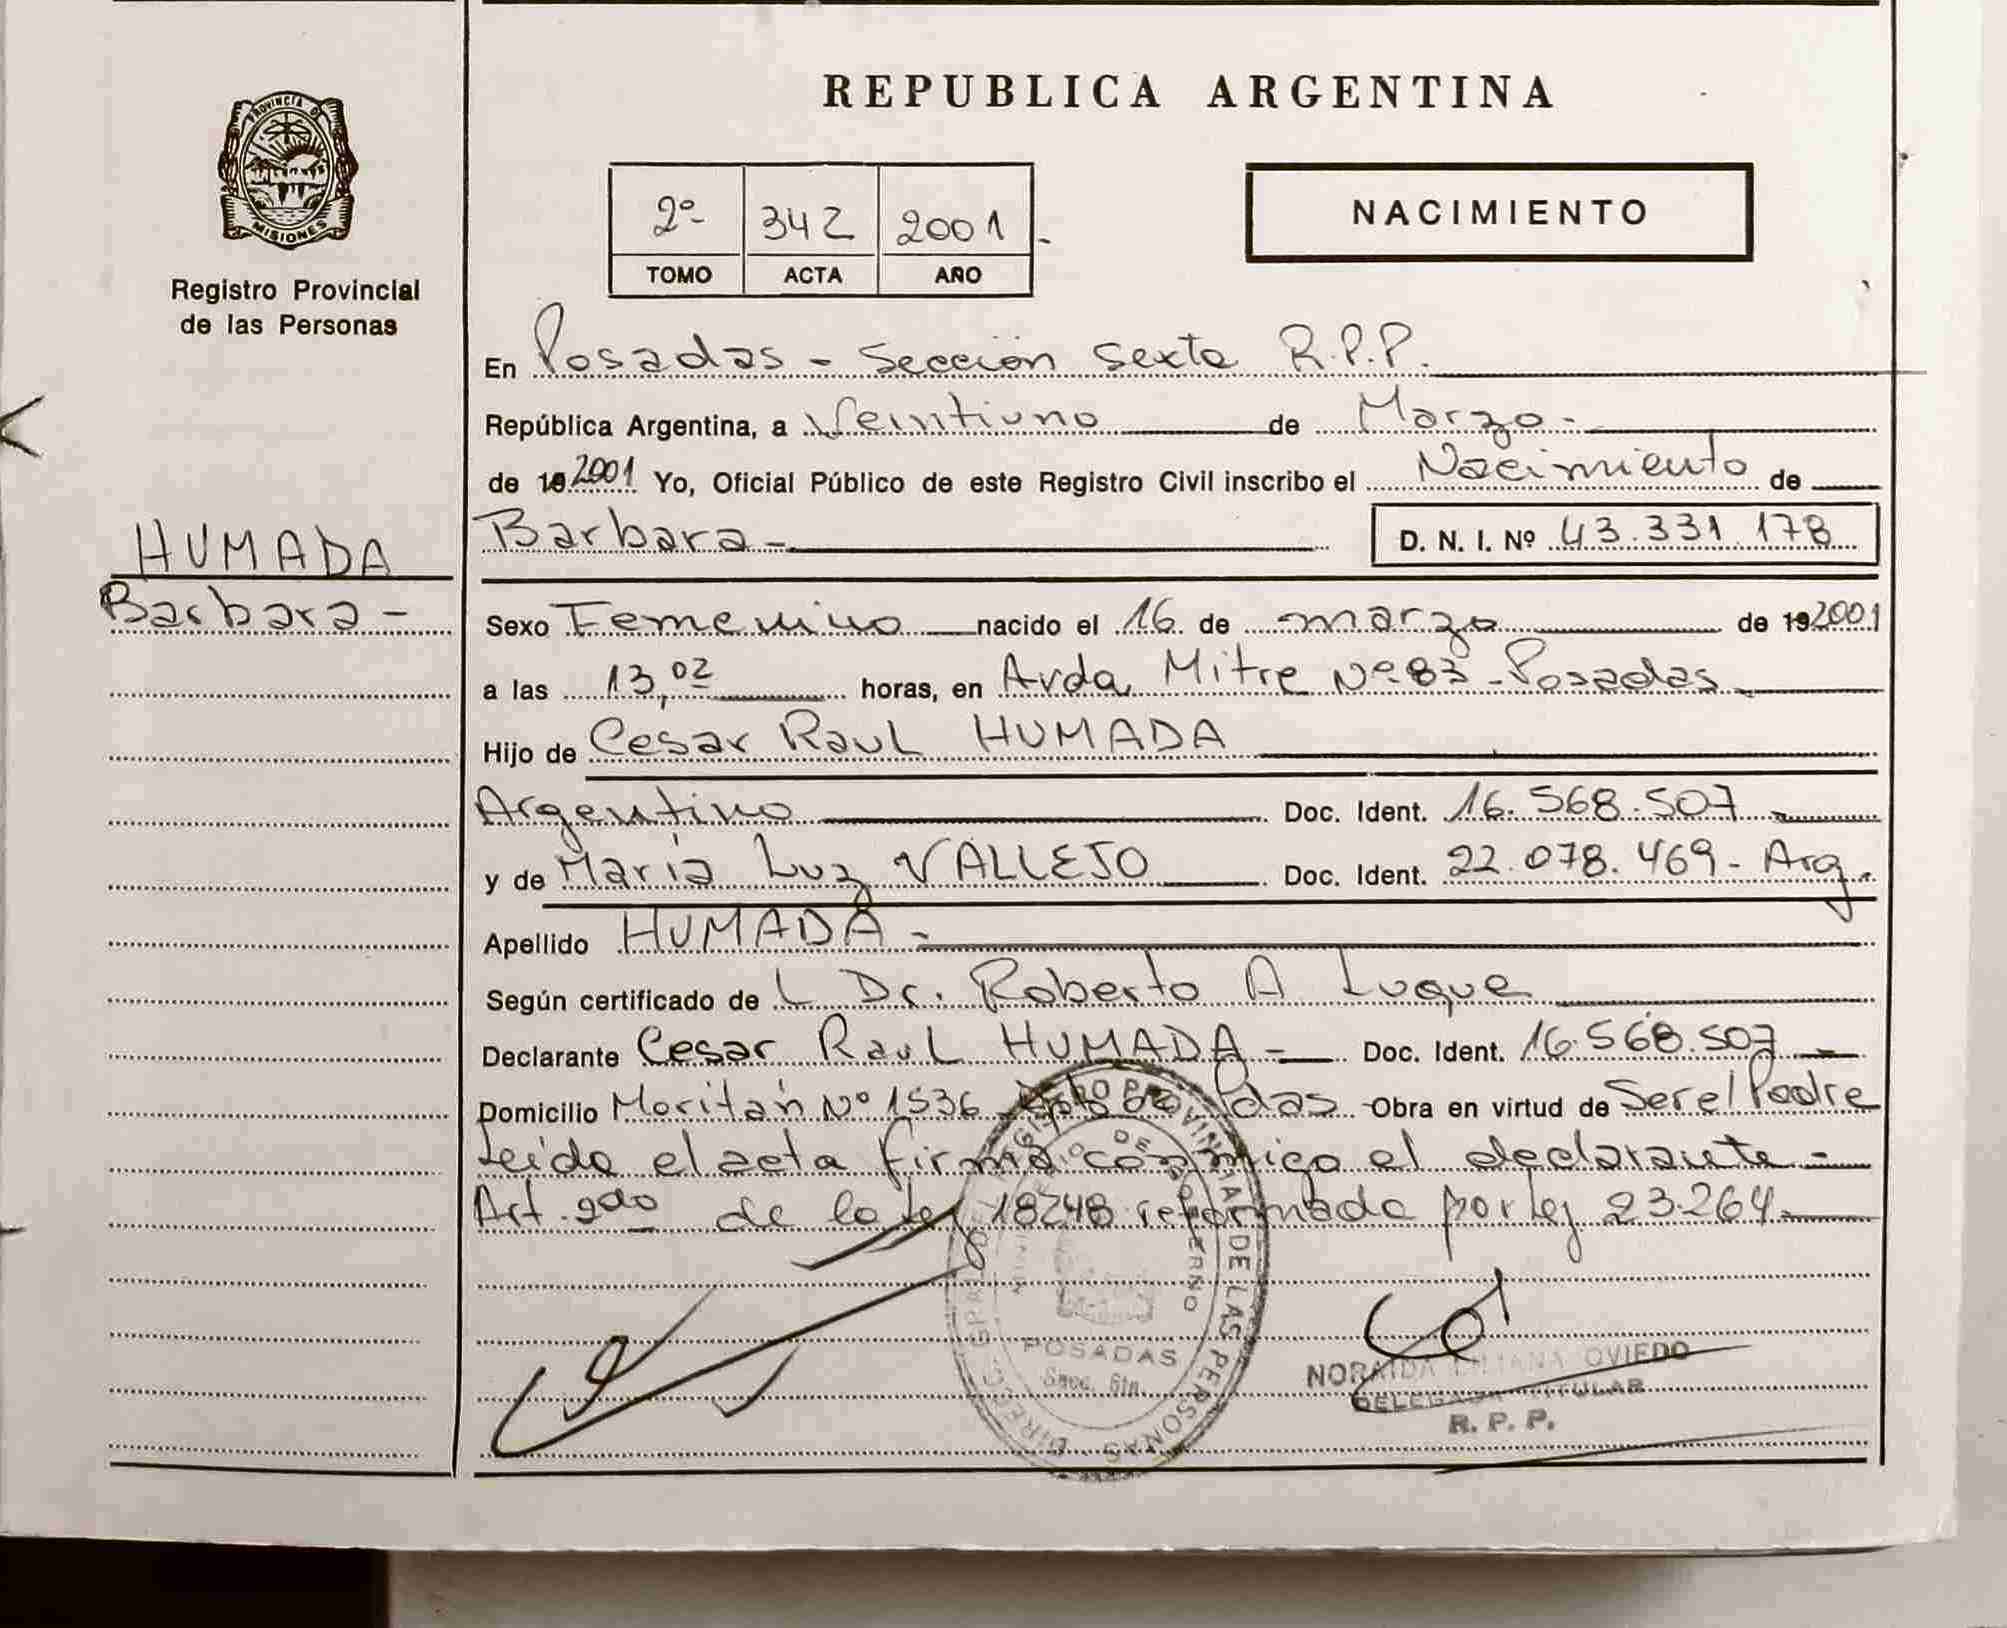 REPUBLICA ARGENTINA
PROVINCIA DE
MISIONES
Registro Provincial
de las Personas
2º 342 2001
TOMO ACTA AÑO
NACIMIENTO
En Posadas - Sección Sexta R.P.P.
República Argentina, a Veintiuno de Marzo -
de 19 2001 Yo, Oficial Público de este Registro Civil inscribo el Nacimiento de
Barbara - D. N. I. Nº 43.331.178
HUMADA
Barbara -
Sexo Femenino nacido el 16 de marzo de 19 2001
a las 13,02 horas, en Avda Mitre Nº 83 - Posadas -
Hijo de Cesar Raul HUMADA
Argentino Doc. Ident. 16.568.507
y de María Luz VALLEJO Doc. Ident. 22.078.469 - Arg.
Apellido HUMADA -
Según certificado de L Dr. Roberto A Luque
Declarante Cesar Raul HUMADA - Doc. Ident. 16.568.507 -
Domicilio Moritán Nº 1536 Pdas - Obra en virtud de Ser el Padre
Leida el acta firma conmigo el declarante -
Art. 2do de la Ley 18248 reformada por Ley 23.264 -
REGISTRO PROVINCIAL DE LAS PERSONAS
DE GOBIERNO
POSADAS
Secc. 6ta.
NORAIDA OVIEDO
DELEGADA TITULAR
R. P. P.